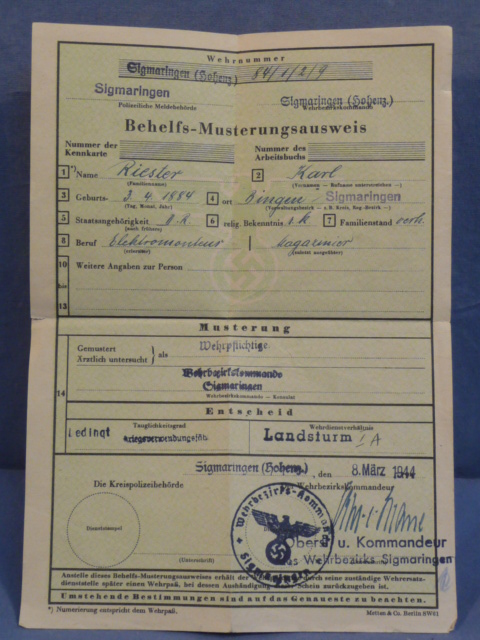 Wehrnummer
Sigmaringen (Hohenz.) 84/1/2/9
Sigmaringen Sigmaringen (Hohenz.)
Polizeiliche Meldebehörde Wehrbezirkskommando
Behelfs-Musterungsausweis
Nummer der Kennkarte Nummer des Arbeitsbuchs
1 *) Name Riester 2 Karl
(Familienname) (Vornamen — Rufname unterstreichen —)
3 Geburts- 3.4.1884 4 ort Bingen Sigmaringen
(Tag, Monat, Jahr) (Verwaltungsbezirk
5 Staatsangehörigkeit D.R. 6 relig. Bekenntnis r.k. 7 Familienstand verh.
(auch frühere)
8 Beruf Elektromonteur Magazinier
(erlernter) (zuletzt ausgeübter)
10 Weitere Angaben zur Person
bis
13
Musterung
Gemustert
Ärztlich untersucht } als Wehrpflichtige
Wehrbezirkskommando
Sigmaringen
14 Wehrbezirkskommando — Konsulat
Entscheid
Tauglichkeitsgrad Wehrdienstverhältnis
bedingt Landsturm I A
Sigmaringen (Hohenz.), den 8. März 1944
Die Kreispolizeibehörde Wehrbezirkskommandeur
Dienststempel
(Unterschrift)
Wehrbezirks-Kommando Sigmaringen
Oberst u. Kommandeur
des Wehrbezirks Sigmaringen
Anstelle dieses Behelfs-Musterungsausweises erhält der durch seine zuständige Wehrersatz-
dienststelle später einen Wehrpaß, bei dessen Aushändigung Schein zurückzugeben ist.
Umstehende Bestimmungen sind auf das Genaueste zu beachten.
*) Numerierung entspricht dem Wehrpaß. Metten & Co. Berlin SW61